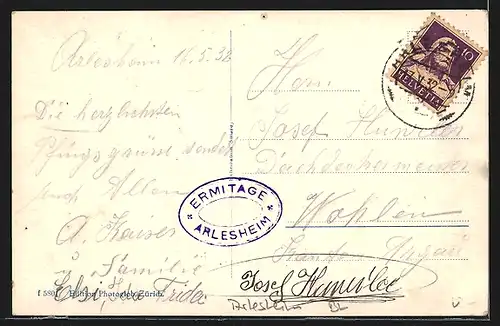 Arlesheim 16.5.32
Die herzlichsten
Pfingstgrüsse sendet
Euch Allen
A. Kaiser
u. Familie
Elsi, Frida
f 580 Edition Photoglob, Zürich.
ERMITAGE
ARLESHEIM
10
HELVETIA
Herrn
Josef
Dachdeckermeister
Wohlen
Kant. Aargau
Josef
Arlesheim